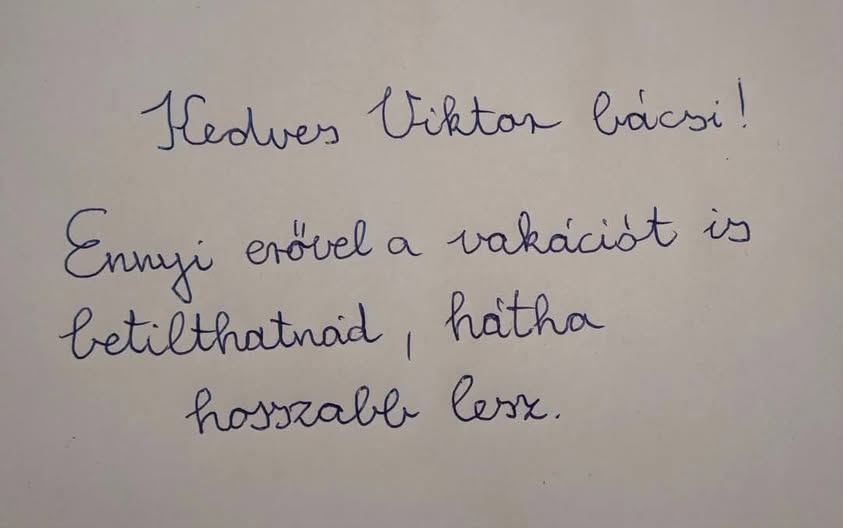 Kedves Viktor bácsi!
Ennyi erővel a vakációt is
betilthatnád, hátha
hosszabb lesz.